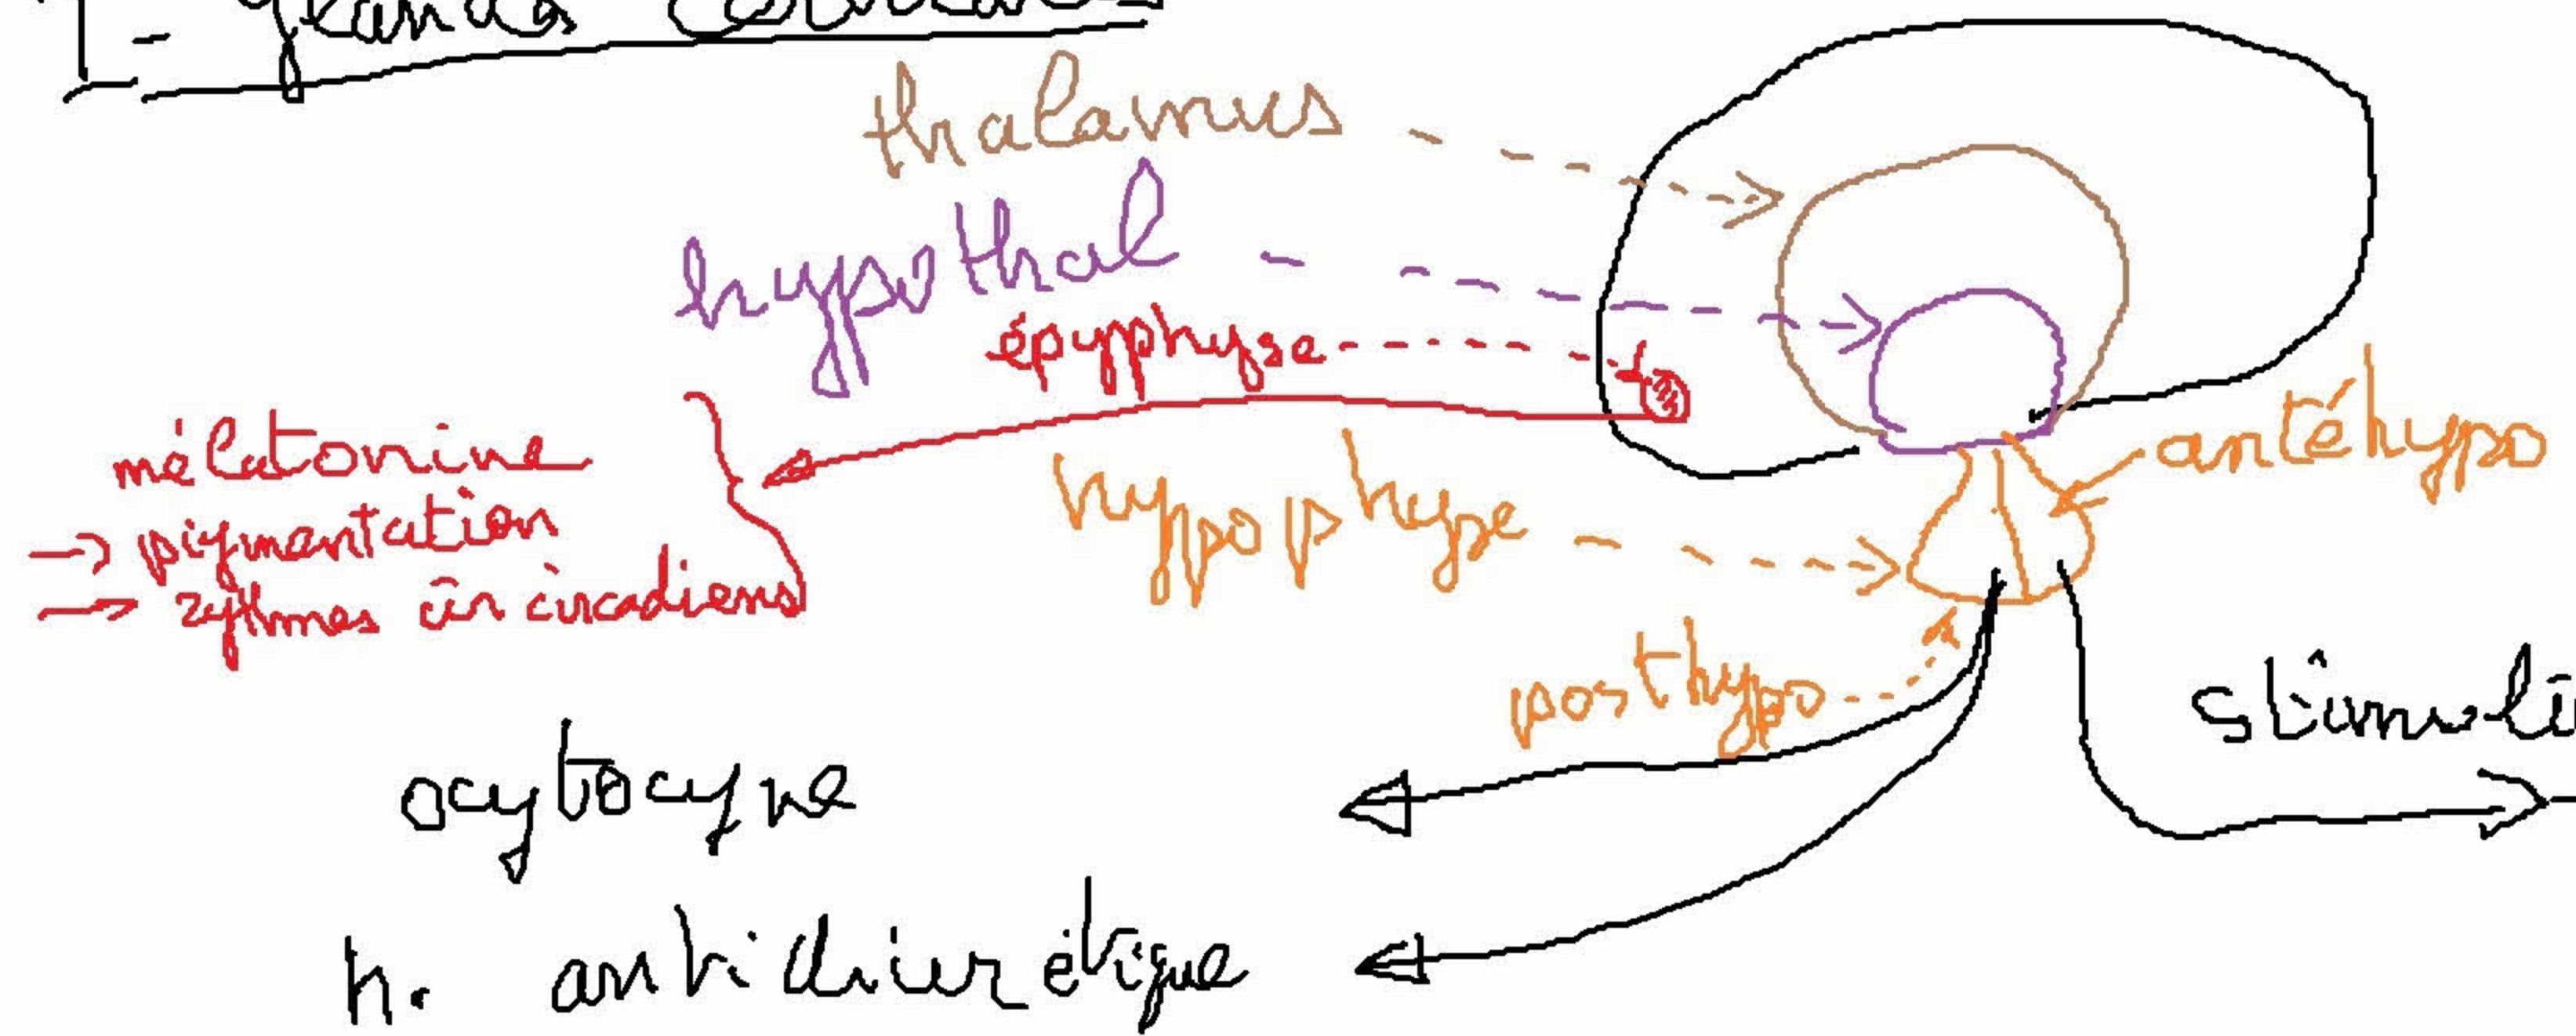 glandes
thalamus
hypothal
épyphyse
mélatonine
→ pigmentation
→ rythmes circadiens
hypophyse
antéhypo
posthypo
stimuli
ocytocyne
h. antidiurétique